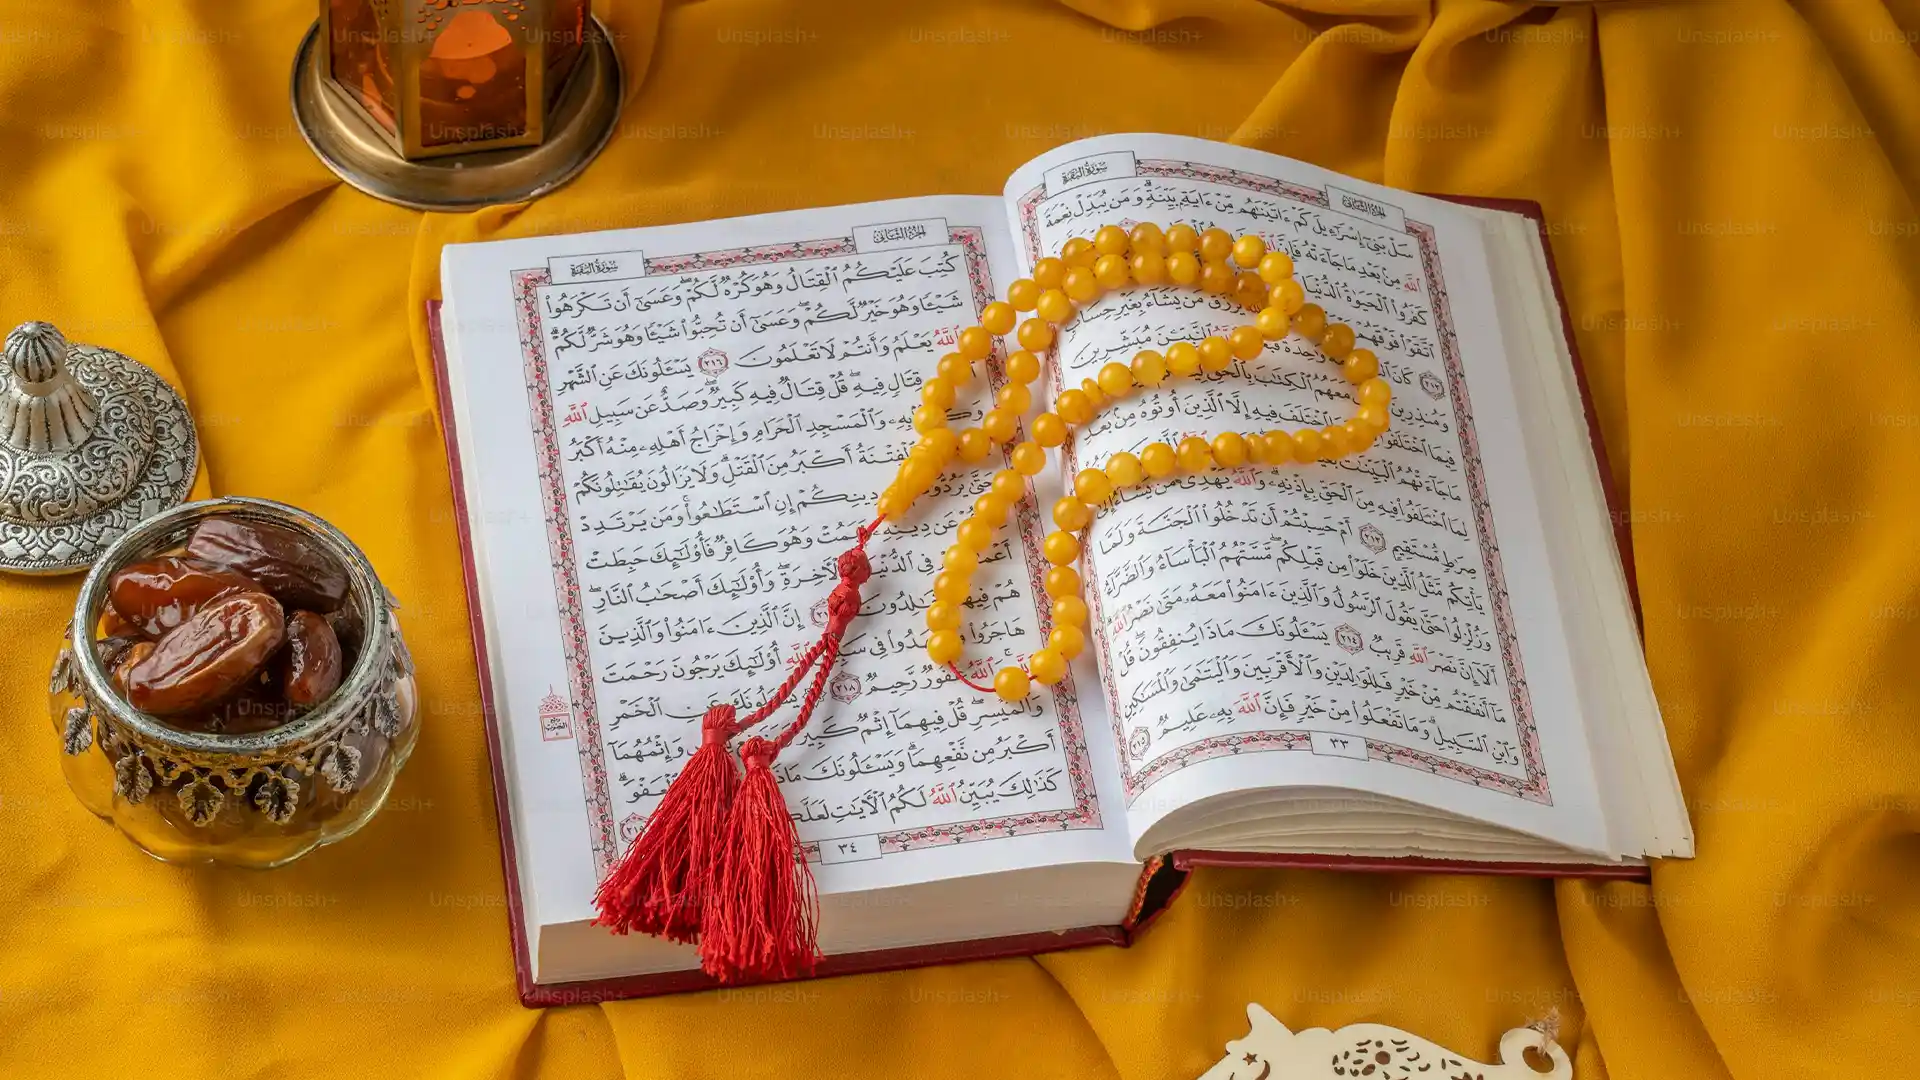 سُورَةُ البَقَرَة الجُزْءُ الثَّانِي
سَلْ بَنِىٓ إِسْرَٰٓءِيلَ كَمْ ءَاتَيْنَٰهُم مِّنْ ءَايَةٍۭ بَيِّنَةٍۗ وَمَن يُبَدِّلْ نِعْمَةَ
ٱللَّهِ مِنۢ بَعْدِ مَا جَآءَتْهُ فَإِنَّ
كَفَرُوا۟ ٱلْحَيَوٰةُ ٱلدُّنْيَا
ٱتَّقَوْا۟ فَوْقَهُمْ يَرْزُقُ مَن يَشَآءُ بِغَيْرِ حِسَابٍ
٢١٢ كَانَ وَٰحِدَةً ٱلنَّبِيِّۦنَ مُبَشِّرِينَ
وَمُنذِرِينَ مَعَهُمُ ٱلْكِتَٰبَ بِٱلْحَقِّ
فِيمَا ٱخْتَلَفُوا۟ ٱخْتَلَفَ فِيهِ إِلَّا ٱلَّذِينَ أُوتُوهُ مِنۢ بَعْدِ
مَا جَآءَتْهُمُ ٱلْبَيِّنَٰتُ
لِمَا ٱخْتَلَفُوا۟ فِيهِ مِنَ ٱلْحَقِّ بِإِذْنِهِۦۗ وَٱللَّهُ يَهْدِى مَن يَشَآءُ إِلَىٰ
صِرَٰطٍ مُّسْتَقِيمٍ ٢١٣ أَمْ حَسِبْتُمْ أَن تَدْخُلُوا۟ ٱلْجَنَّةَ وَلَمَّا
يَأْتِكُم مَّثَلُ ٱلَّذِينَ خَلَوْا۟ مِن قَبْلِكُمۖ مَّسَّتْهُمُ ٱلْبَأْسَآءُ وَٱلضَّرَّآءُ
وَزُلْزِلُوا۟ حَتَّىٰ يَقُولَ ٱلرَّسُولُ وَٱلَّذِينَ ءَامَنُوا۟ مَعَهُۥ مَتَىٰ نَصْرُ ٱللَّهِ
أَلَآ إِنَّ نَصْرَ ٱللَّهِ قَرِيبٌ ٢١٤ يَسْـَٔلُونَكَ مَاذَا يُنفِقُونَۖ قُلْ
مَآ أَنفَقْتُم مِّنْ خَيْرٍ فَلِلْوَٰلِدَيْنِ وَٱلْأَقْرَبِينَ وَٱلْيَتَٰمَىٰ وَٱلْمَسَٰكِينِ
وَٱبْنِ ٱلسَّبِيلِۗ وَمَا تَفْعَلُوا۟ مِنْ خَيْرٍ فَإِنَّ ٱللَّهَ بِهِۦ عَلِيمٌ ٢١٥
٣٣
الجُزْءُ الثَّانِي سُورَةُ البَقَرَة
كُتِبَ عَلَيْكُمُ ٱلْقِتَالُ وَهُوَ كُرْهٌ لَّكُمْۖ وَعَسَىٰٓ أَن تَكْرَهُوا۟
شَيْـًٔا وَهُوَ خَيْرٌ لَّكُمْۖ وَعَسَىٰٓ أَن تُحِبُّوا۟ شَيْـًٔا وَهُوَ شَرٌّ لَّكُمْۗ
وَٱللَّهُ يَعْلَمُ وَأَنتُمْ لَا تَعْلَمُونَ ٢١٦ يَسْـَٔلُونَكَ عَنِ ٱلشَّهْرِ
قِتَالٍ فِيهِۖ قُلْ قِتَالٌ فِيهِ كَبِيرٌۖ وَصَدٌّ عَن سَبِيلِ ٱللَّهِ
بِهِۦ وَٱلْمَسْجِدِ ٱلْحَرَامِ وَإِخْرَاجُ أَهْلِهِۦ مِنْهُ أَكْبَرُ
وَٱلْفِتْنَةُ أَكْبَرُ مِنَ ٱلْقَتْلِۗ وَلَا يَزَالُونَ يُقَٰتِلُونَكُمْ
حَتَّىٰ يَرُدُّوكُمْ دِينِكُمْ إِنِ ٱسْتَطَٰعُوا۟ۚ وَمَن يَرْتَدِدْ
عَن دِينِهِۦ فَيَمُتْ وَهُوَ كَافِرٌ فَأُو۟لَٰٓئِكَ حَبِطَتْ
فِى ٱلدُّنْيَا وَٱلْءَاخِرَةِۖ وَأُو۟لَٰٓئِكَ أَصْحَٰبُ ٱلنَّارِۖ
هُمْ فِيهَا خَٰلِدُونَ إِنَّ ٱلَّذِينَ ءَامَنُوا۟ وَٱلَّذِينَ
هَاجَرُوا۟ فِى ٱللَّهِ أُو۟لَٰٓئِكَ يَرْجُونَ رَحْمَتَ
ٱللَّهِۚ وَٱللَّهُ غَفُورٌ رَّحِيمٌ ٢١٨ يَسْـَٔلُونَكَ عَنِ ٱلْخَمْرِ
وَٱلْمَيْسِرِۖ قُلْ فِيهِمَآ إِثْمٌ كَبِيرٌ وَإِثْمُهُمَآ
أَكْبَرُ مِن نَّفْعِهِمَاۗ وَيَسْـَٔلُونَكَ مَاذَا ٱلْعَفْوَۗ
كَذَٰلِكَ يُبَيِّنُ ٱللَّهُ لَكُمُ ٱلْءَايَٰتِ
٣٤
Unsplash+